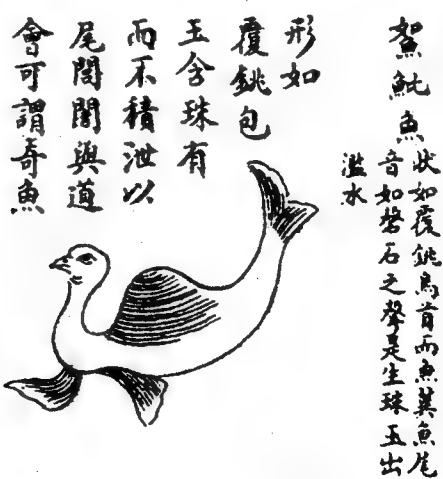 鴽魮魚
狀如覆銚鳥首而魚翼魚尾
音如磬石之聲是生珠玉出
濫水
形如
覆銚包
玉含珠有
而不積泄以
尾閭闇與道
會可謂奇魚